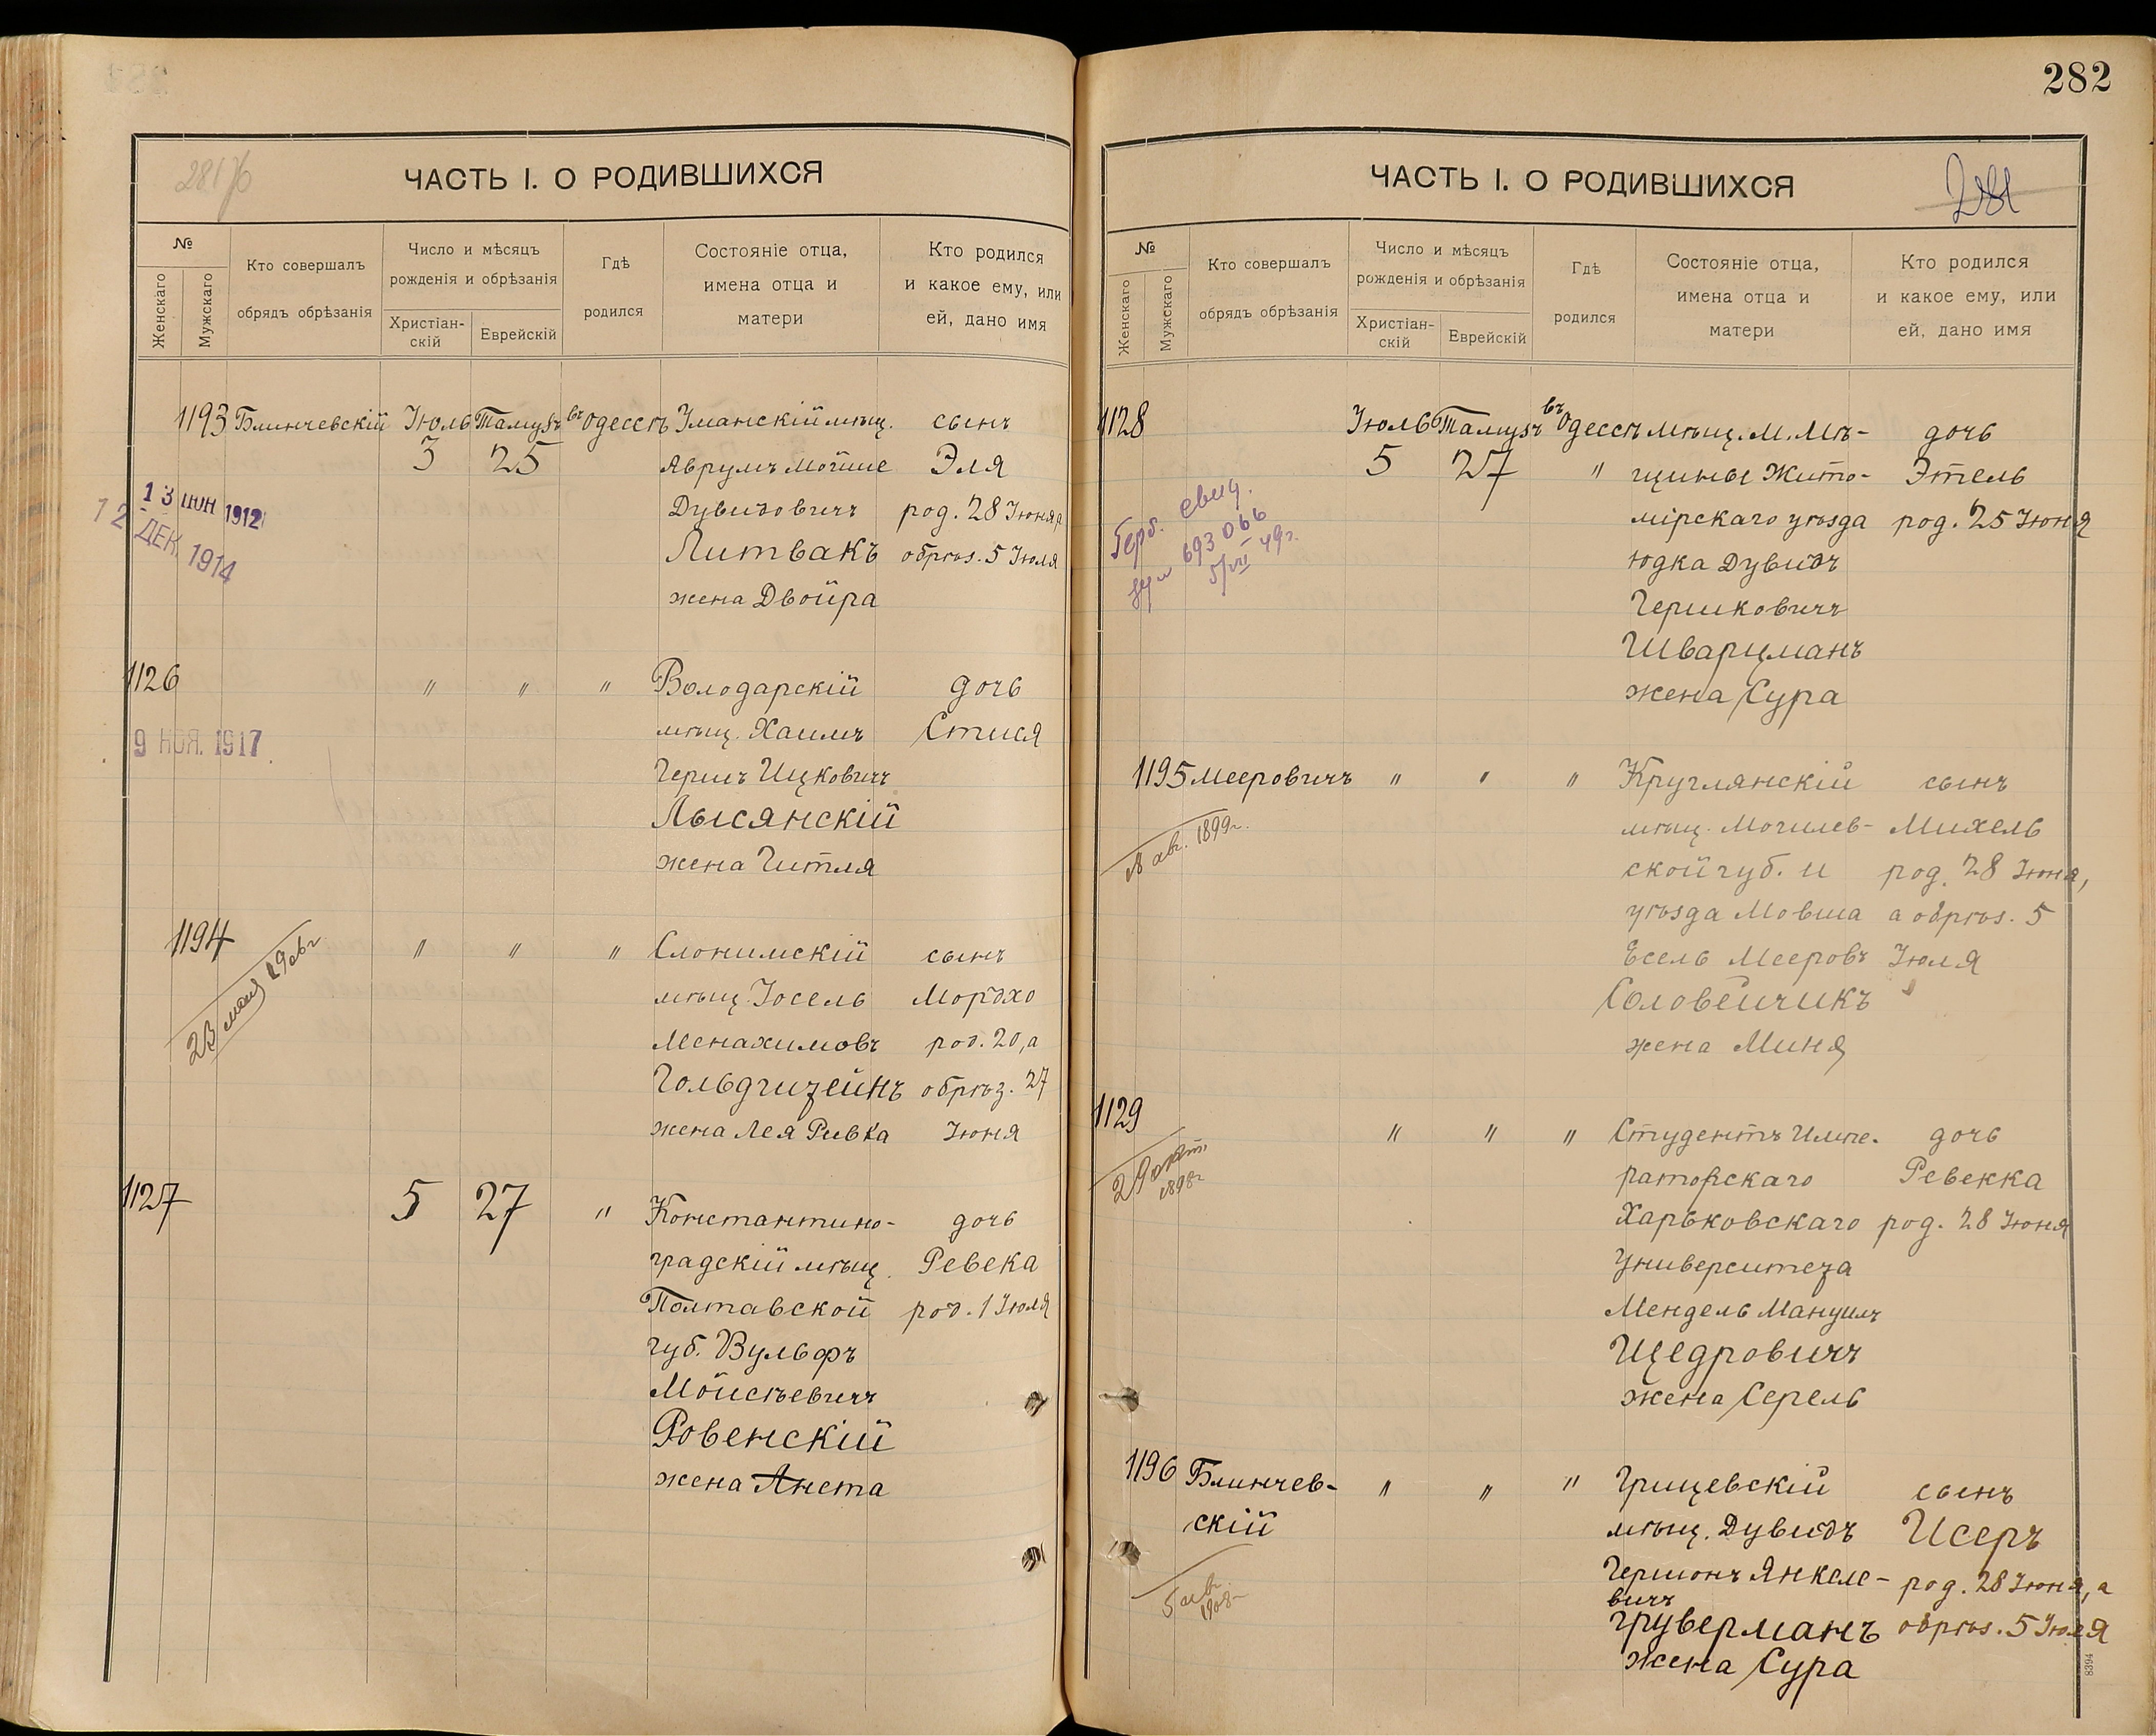 282
281 об
ЧАСТЬ I. О РОДИВШИХСЯ
№
Женскаго
Мужскаго
Кто совершалъ
обрядъ обрѣзанія
Число и мѣсяцъ
рожденія и обрѣзанія
Христіан-
скій
Еврейскій
Гдѣ
родился
Состояніе отца,
имена отца и
матери
Кто родился
и какое ему, или
ей, дано имя
1193 Блинчевскій Іюль Тамузъ въ Одессѣ Уманскій мѣщ. сынъ
3 25 Аврумъ Мойше Эля
Дувидовичъ род. 28 Іюня, а
Литвакъ обрѣз. 5 Іюля
жена Двойра
13 ИЮН 1912
12 ДЕК. 1914
1126 " " " Володарскій дочь
мѣщ. Хаимъ Стися
Гершъ Ицковичъ
Лысянскій
жена Гитля
9 НОЯ. 1917
1194 " " " Слонимскій сынъ
мѣщ. Іосель Мордхо
Менахимовъ род. 20, а
Гольдгизейнъ обрѣз. 27
жена Лея Ривка Іюня
23 мая 1906г
1127 5 27 " Константино- дочь
градскій мѣщ. Ревека
Полтавской род. 1 Іюля
губ. Вульфъ
Мойсѣевичъ
Ровенскій
жена Анета
ЧАСТЬ I. О РОДИВШИХСЯ
281
№
Женскаго
Мужскаго
Кто совершалъ
обрядъ обрѣзанія
Число и мѣсяцъ
рожденія и обрѣзанія
Христіан-
скій
Еврейскій
Гдѣ
родился
Состояніе отца,
имена отца и
матери
Кто родился
и какое ему, или
ей, дано имя
1128 Іюль Тамузъ въ Одессѣ мѣщ. М. Мѣ- дочь
5 27 " щины Жито- Этель
мірскаго уѣзда род. 25 Іюня
Юдка Дувидъ
Гершковичъ
Шварцманъ
жена Сура
Герб. свид.
693066
5/VII 49г.
1195 Мееровичъ " " " Круглянскій сынъ
мѣщ. Могилев- Михель
ской губ. и род. 28 Іюня,
уѣзда Мовша а обрѣз. 5
Есель Мееровъ Іюля
Соловейчикъ
жена Миня
18 ав. 1899г.
1129 " " " Студентъ Импе- дочь
раторскаго Ревекка
Харьковскаго род. 28 Іюня
Университета
Мендель Мануилъ
Щедровичъ
жена Серель
29 окт.
1898г
1196 Блинчев- " " " Грицевскій сынъ
скій мѣщ. Дувидъ Исеръ
Гершонъ Янкеле- род. 28 Іюня, а
вичъ
Груверманъ обрѣз. 5 Іюля
жена Сура
1908
8394